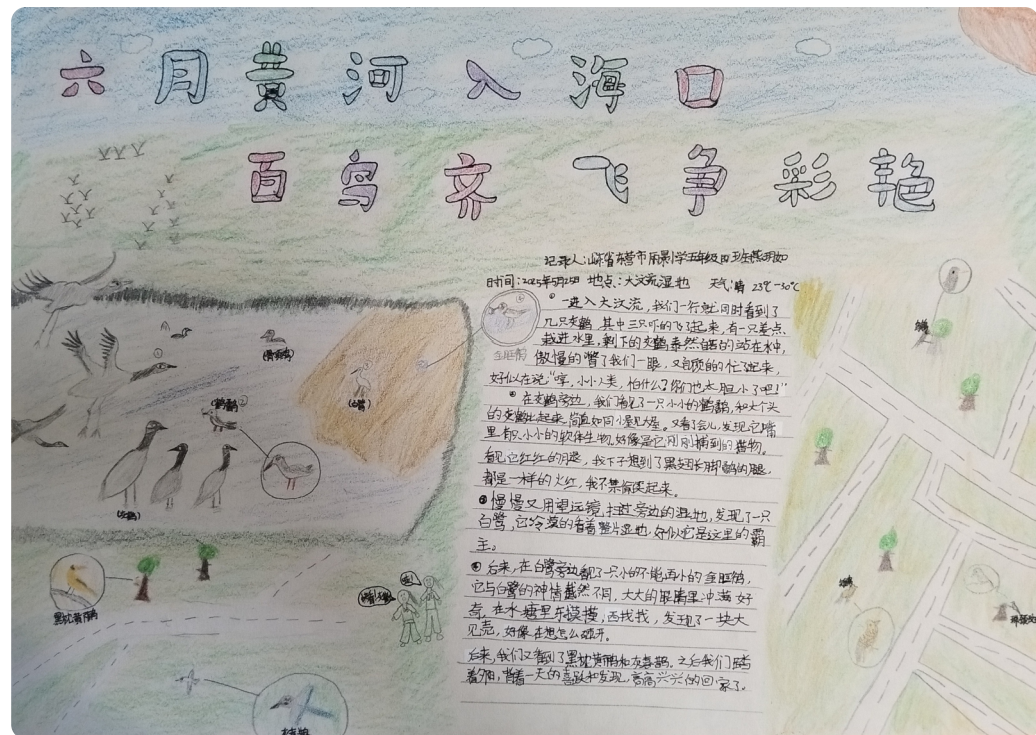 六月黄河入海口
百鸟齐飞争彩艳
记录人:山东省东营市胜景小学五年级四班
时间:2025年5月25日 地点:大汶流湿地 天气:晴 23℃-30℃
①一进入大汶流,我们一行就同时看到了
几只灰鹤,其中三只吓的飞了起来,有一只差点
栽进水里,剩下的灰鹤泰然自若的站在水中,
傲慢的瞥了我们一眼,又自顾自的忙了起来,
好似在说:“哼,小小人类,怕什么?你们也太胆小了吧!”
②在灰鹤旁边,我们看见了一只小小的鹤鹬,和大个头
的灰鹤比起来,简直如同小巫见大巫。又看了会儿,发现它嘴
里有只小小的软体生物,好像是它刚刚捕到的猎物。
看见它红红的腿,我一下子想到了黑翅长脚鹬的腿,
都是一样的火红,我不禁偷笑起来。
③慢慢又用望远镜,扫过旁边的湿地,发现了一只
白鹭,它冷漠的看着整片湿地,好似它是这里的霸
主。
④后来,在白鹭旁边看见了一只小的不能再小的金眶鸻,
它与白鹭的神情截然不同,大大的眼睛里冲满好
奇,在水塘里东摸摸,西找找,发现了一块大
贝壳,好像在想怎么砸开。
后来,我们又看到了黑枕黄鹂和灰喜鹊。之后我们踏
着夕阳,背着一天的喜跃和发现,高高兴兴的回家了。
金眶鸻
(白鹭)
(鹤鹬)②
黑枕黄鹂